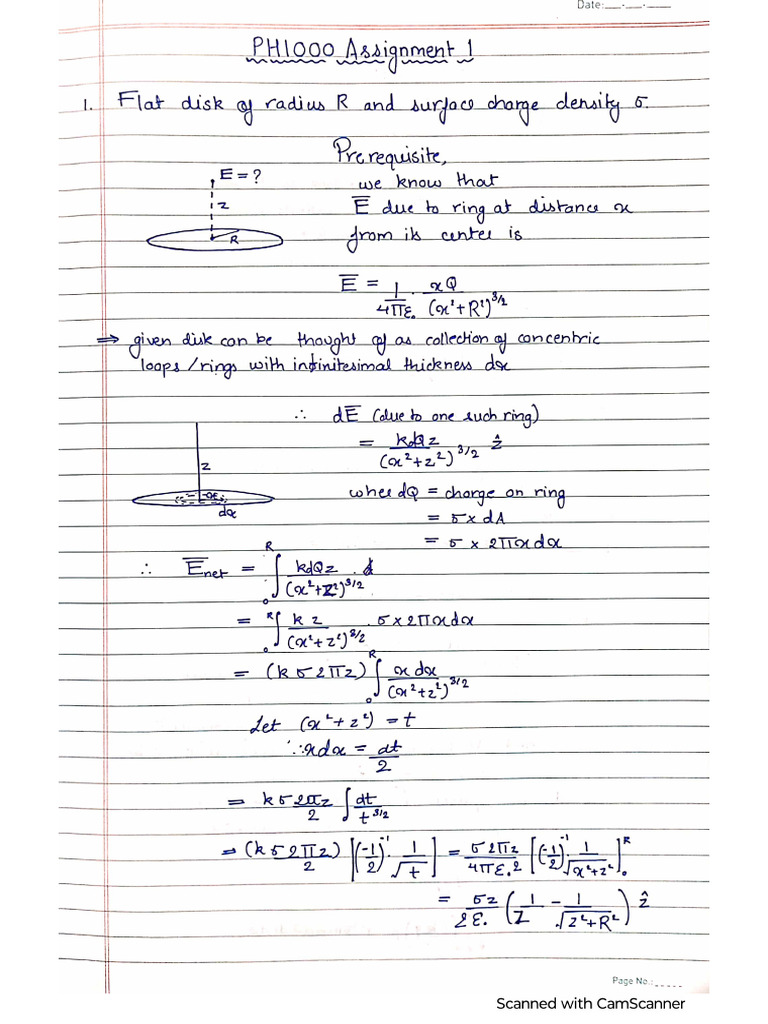 Date:__.__.__
PH1000 Assignment 1
1. Flat disk of radius R and surface charge density σ.
Prerequisite,
E = ?
we know that
z
E̅ due to ring at distance x
R
from its center is
E̅ = 1/4πε₀ · xQ/(x²+R²)^3/2
⇒ given disk can be thought of as collection of concentric
loops/rings with infinitesimal thickness dx
∴ dE̅ (due to one such ring)
= kdQz/(x²+z²)^3/2 ẑ
z
x
dx
wher dQ = charge on ring
= σ × dA
= σ × 2πxdx
∴ E̅net = ∫₀ᴿ kdQz/(x²+z²)^3/2 .
= ∫₀ᴿ kz/(x²+z²)^3/2 . σ × 2πxdx
= (kσ2πz) ∫₀ᴿ xdx/(x²+z²)^3/2
Let (x²+z²) = t
∴ xdx = dt/2
= kσ2πz/2 ∫ dt/t^3/2
= (kσ2πz)/2 [(-1/2)⁻¹ · 1/√t] = σ2πz/4πε₀2 [(-1/2)⁻¹ · 1/√x²+z²]₀ᴿ
= σz/2ε₀ (1/z - 1/√z²+R²) ẑ
Page No.:_____
Scanned with CamScanner